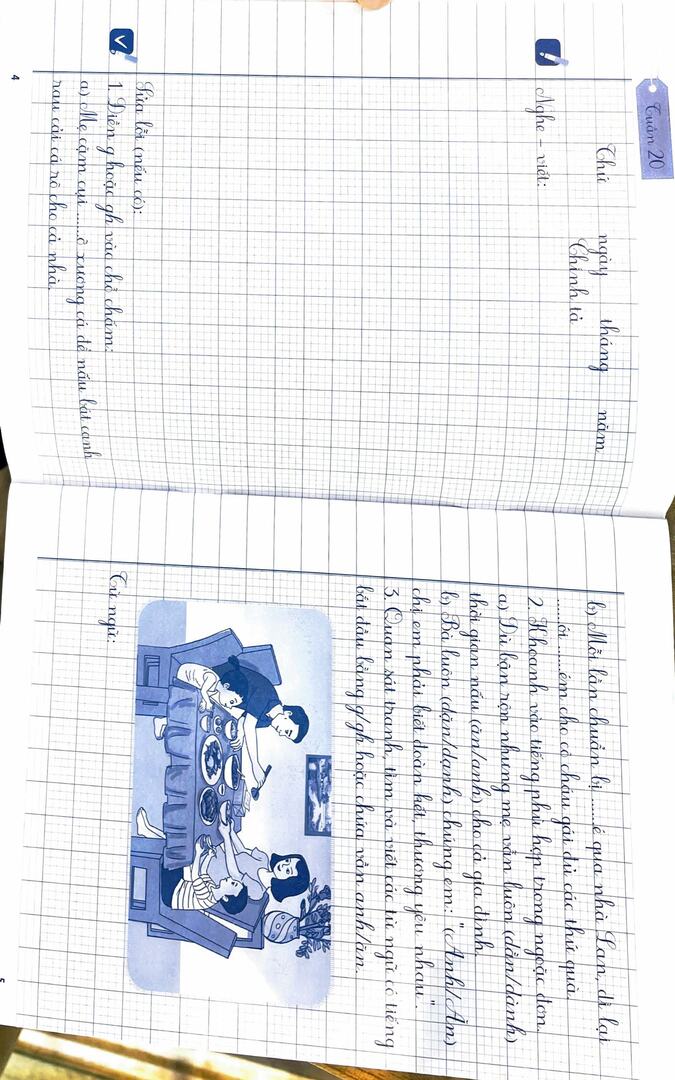 Tuần 20
Thứ ngày tháng năm
Chính tả
Nghe - viết:
Sửa lỗi (nếu có):
1. Điền g hoặc gh vào chỗ chấm:
a) Mẹ cặm cụi ......ỡ xương cá để nấu bát canh
rau cải cá rô cho cả nhà.
4
b) Mỗi lần chuẩn bị ......é qua nhà Lan, dì lại
......ói ......ém cho cô cháu gái đủ các thứ quà.
2. Khoanh vào tiếng phù hợp trong ngoặc đơn.
a) Dù bận rộn nhưng mẹ vẫn luôn (dằn/dành)
thời gian nấu (ăn/anh) cho cả gia đình.
b) Bà luôn (dặn/dạnh) chúng em: "(Anh/Ăn)
chị em phải biết đoàn kết, thương yêu nhau".
3. Quan sát tranh, tìm và viết các từ ngữ có tiếng
bắt đầu bằng g/gh hoặc chứa vần anh/ăn.
Từ ngữ:
5